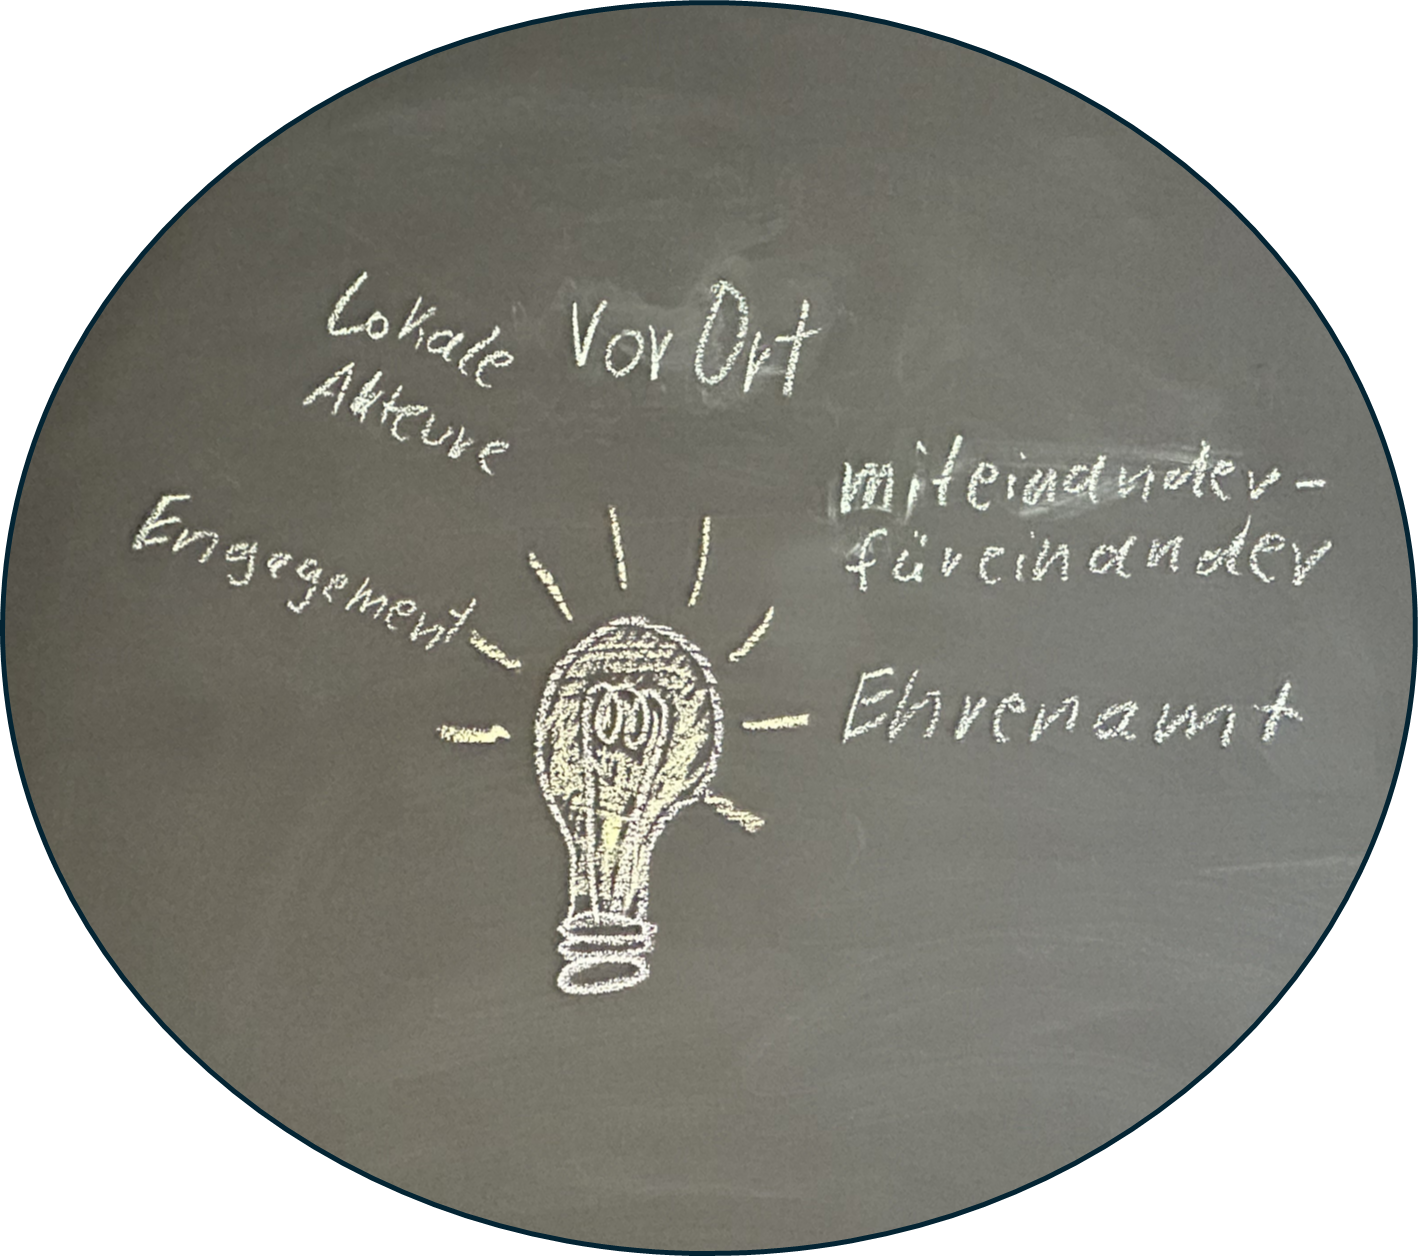 Lokale
Akteure
Vor Ort
miteinander-
füreinander
Engagement
Ehrenamt